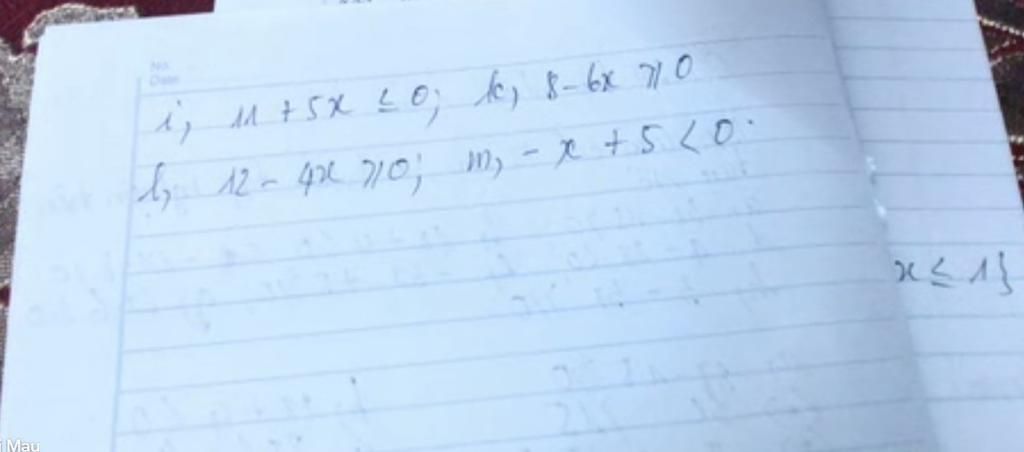 No.
Date
i, 11 + 5x ≤ 0; k, 8 - 6x ≥ 0
l, 12 - 4x ≥ 0; m, - x + 5 < 0.
x ≤ 1}
Mau